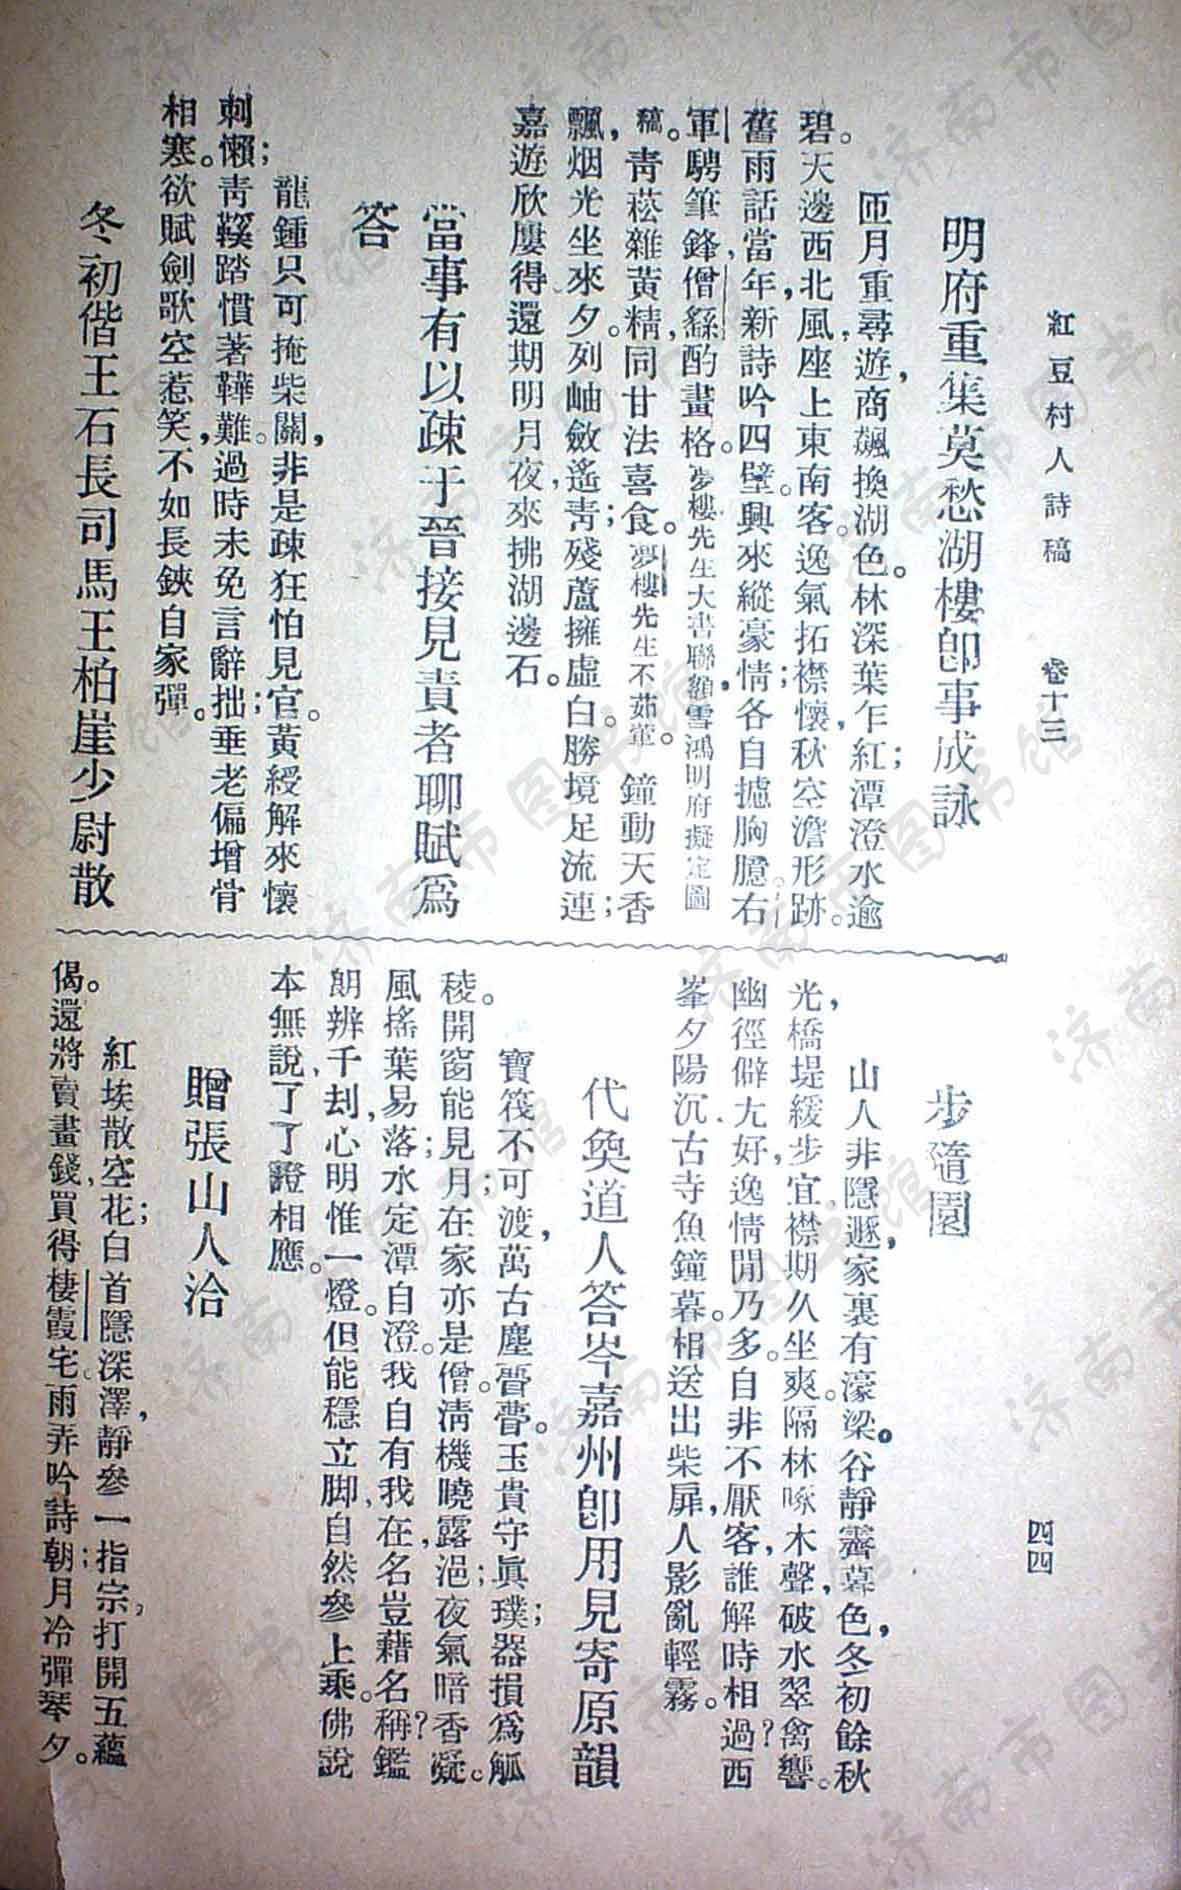 紅豆村人詩稿　卷十三　四四
明府重集莫愁湖樓卽事成詠
匝月重尋遊，商飆換湖色。林深葉乍紅；潭澄水逾
碧。天邊西北風，座上東南客。逸氣拓襟懷，秋空澹形跡。
舊雨話當年，新詩吟四壁。興來縱豪情；各自攄胸臆。右
軍騁筆鋒，僧繇酌畫格。夢樓先生大書聯額，雪鴻明府擬定圖
稿。靑菘雜黃精，同甘法喜食。夢樓先生不茹葷。鐘動天香
飄，烟光坐來夕。列岫斂遙靑；殘蘆擁虛白。勝境足流連；
嘉遊欣屢得。還期明月夜，來拂湖邊石。
當事有以疎于晉接見責者聊賦爲
答
龍鍾只可掩柴關，非是疎狂怕見官。黃綬解來懷
刺懶；靑鞵踏慣著鞾難。過時未免言辭拙；垂老偏增骨
相寒。欲賦劍歌空惹笑，不如長鋏自家彈。
冬初偕王石長司馬王柏崖少尉散
步隨園
山人非隱遯，家裏有濠梁。谷靜霽暮色，冬初餘秋
光。橋堤緩步宜，襟期久坐爽。隔林啄木聲，破水翠禽響。
幽徑僻尤好，逸情閒乃多。自非不厭客，誰解時相過？西
峯夕陽沉，古寺魚鐘暮。相送出柴扉，人影亂輕霧。
代奐道人答岑嘉州卽用見寄原韻
寶筏不可渡，萬古塵瞢瞢。玉貴守眞璞；器損爲觚
稜。開窗能見月；在家亦是僧。淸機曉露浥；夜氣暗香凝。
風搖葉易落，水定潭自澄。我自有我在，名豈藉名稱？鑑
朗辨千刦，心明惟一燈。但能穩立脚，自然參上乘。佛說
本無說，了了證相應。
贈張山人洽
紅埃散空花；白首隱深澤，靜參一指宗，打開五蘊
偈。還將賣畫錢，買得棲霞宅。雨弄吟詩朝；月冷彈琴夕。